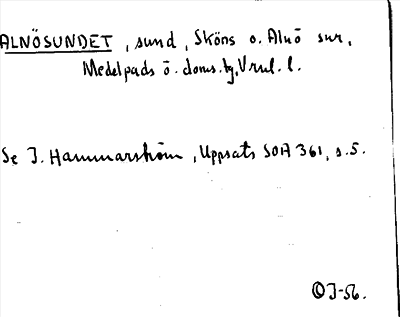 ALNÖSUNDET, sund, Sköns o. Alnö snr,
Medelpads ö. doms.tg, Vnrl. l.
Se J. Hammarström, Uppsats SOA 361, s. 5.
OJ-56.